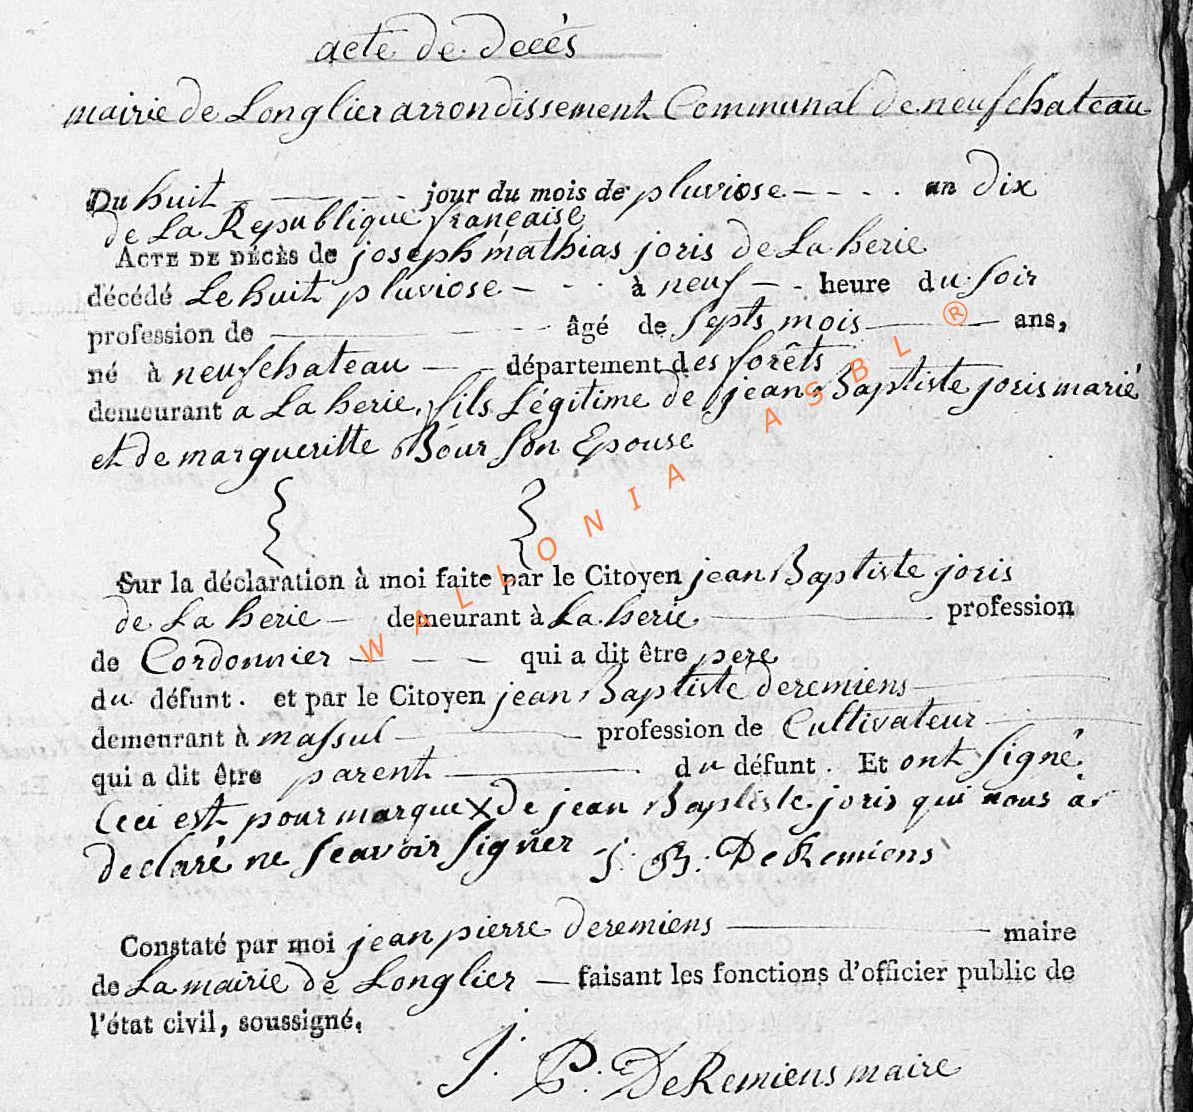 acte de décès
mairie de Longlier arrondissement Communal de neufchateau
Du huit jour du mois de pluviose an dix
de La Republique française
ACTE DE DÉCÈS de joseph mathias joris de La herie
décédé Le huit pluviose à neuf heure du soir
profession de âgé de septs mois ans,
né à neufchateau département des forêts
demeurant a La herie, fils Légitime de jean Baptiste joris marié
et de margueritte Bour son Epouse
Sur la déclaration à moi faite par le Citoyen jean Baptiste joris
de La herie demeurant à La herie profession
de Cordonnier qui a dit être pere
du défunt. et par le Citoyen jean Baptiste deremiens
demeurant à massul profession de Cultivateur
qui a dit être parent du défunt. Et ont signé
Ceci est pour marque X de jean Baptiste joris qui nous à
declaré ne scavoir signer J. B. DeRemiens
Constaté par moi jean pierre deremiens maire
de La mairie de Longlier faisant les fonctions d'officier public de
l'état civil, soussigné,
J. P. DeRemiens maire
WALLONIA ASBL ®